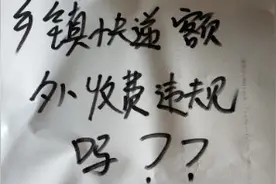 乡镇快递额
外收费违规
吗??